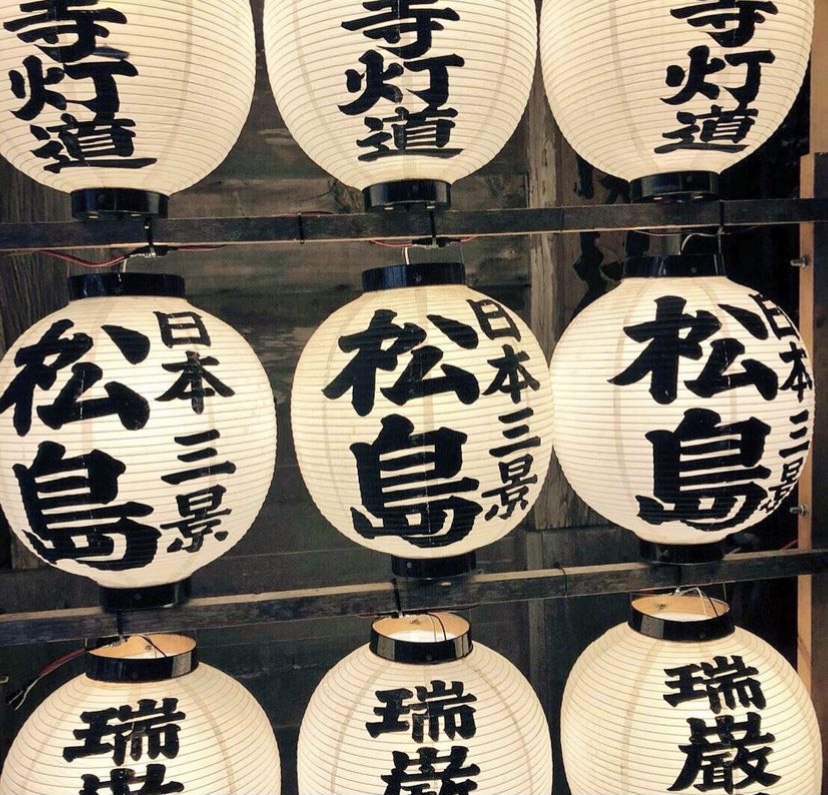 寺灯道
寺灯道
寺灯道
日本三景
松島
日本三景
松島
日本三景
松島
瑞巌
瑞巌
瑞巌